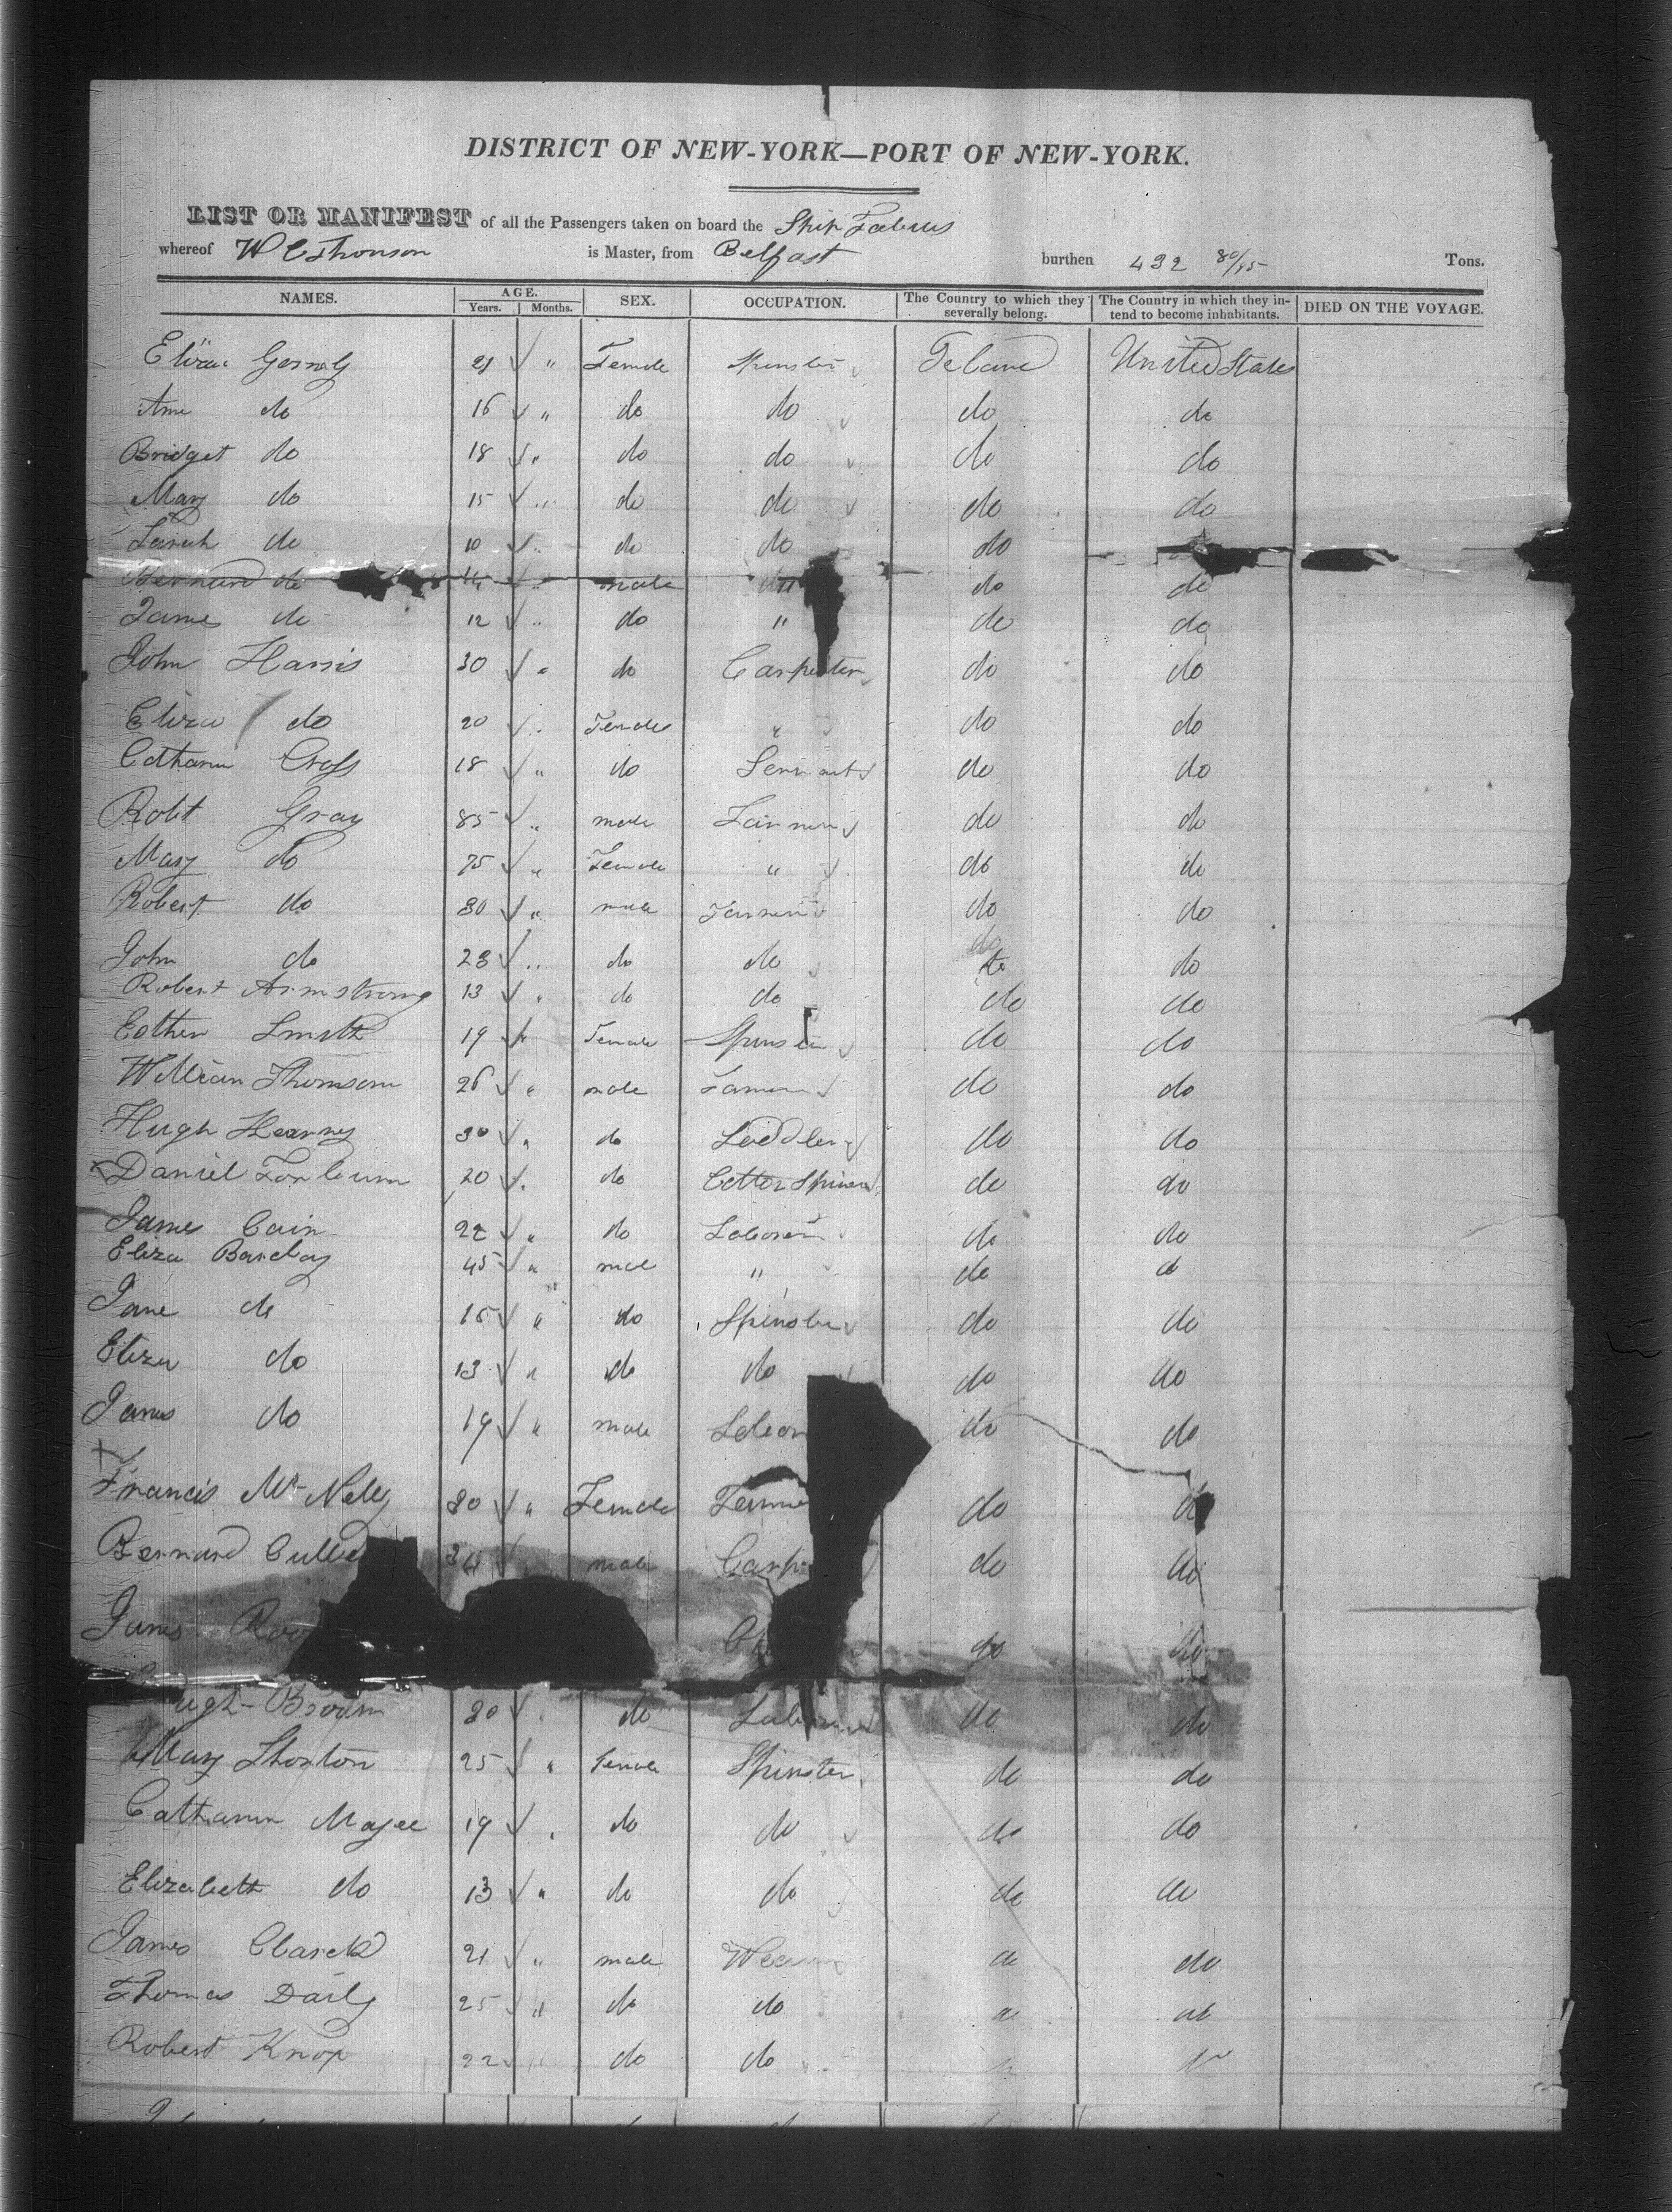 DISTRICT OF NEW-YORK—PORT OF NEW-YORK.
LIST OR MANIFEST of all the Passengers taken on board the Ship Fabius
whereof W C Thomson is Master, from Belfast burthen 432 80/95 Tons.
NAMES. AGE. Years. Months. SEX. OCCUPATION. The Country to which they severally belong. The Country in which they intend to become inhabitants. DIED ON THE VOYAGE.
Eliza 21 " Female Spinster United States
Ann do 16 " do do do do
Bridget do 18 " do do do do
Mary do 15 " do do do do
Sarah do 10 " do do do
Bernard do 14 " male do do
James do 12 " do " do do
John Harris 30 " do Carpenter do do
Eliza do 20 " Female " do do
Catharin Cross 18 " do Servant do do
Robt Gray 85 " male do do
Mary do 75 " Female " do do
Robert do 30 " male do do
John do 23 " do do do do
Robert Armstrong 13 " do do do do
Esther Smith 19 " Female Spinster do do
William Thomson 26 " male do do
Hugh Kearney 30 " do Saddler do do
Daniel 20 " do Cotton Spiner do do
James Cain 22 " do do do
Eliza Barclay 45 " male " do do
Jane do 15 " do Spinster do do
Eliza do 13 " do do do do
James do 19 " male Labor do do
Francis Mc Nelly 30 " Female do do
Bernard Culle 34 male Carp do do
James do do
ugh Brown 30 " do Laborer do do
Mary Shorton 25 " Female Spinster do do
Catharin Magee 19 " do do do do
Elizabeth do 13 " do do do do
James Clarck 21 " male Weaver do do
Thomas Daily 25 " do do do do
Robert Knox 22 " do do